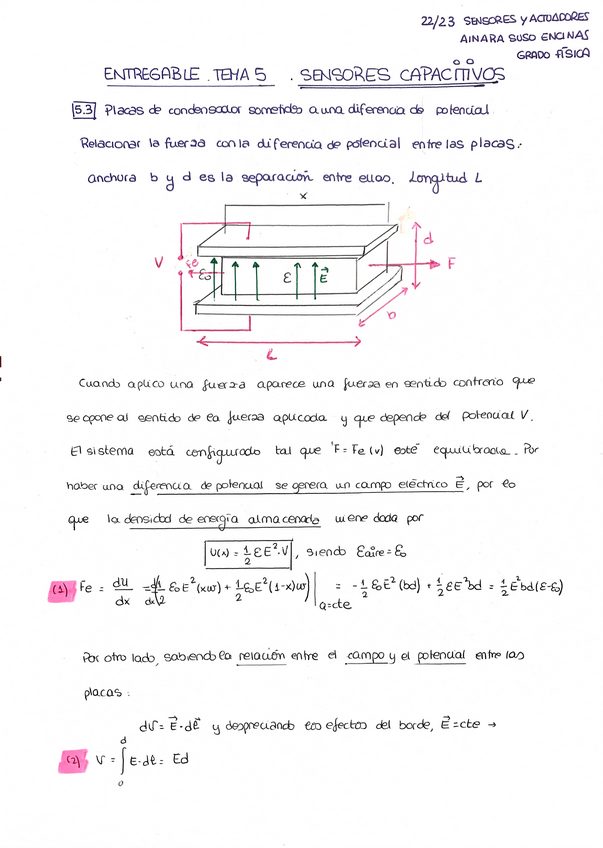 22/23 SENSORES Y ACTUADORES
AINARA SUSO ENCINAS
GRADO FÍSICA
ENTREGABLE. TEMA 5 . SENSORES CAPACITIVOS
5.3 Placas de condensador sometidos a una diferencia de potencial.
Relacionar la fuerza con la diferencia de potencial entre las placas:
anchura b y d es la separación entre ellas. Longitud L
x
d
V
Fe
ε₀
ε
E⃗
F
b
L
Cuando aplico una fuerza aparece una fuerza en sentido contrario que
se opone al sentido de la fuerza aplicada y que depende del potencial V.
El sistema está configurado tal que F = Fe (v) esté equilibrada. Por
haber una diferencia de potencial se genera un campo eléctrico E⃗, por lo
que la densidad de energía almacenada viene dada por
U(x) = 1/2 εE²·V , siendo εaire = ε₀
(1) Fe = dU/dx = d/dx 1/2 ε₀E²(xw) + 1/2 ε₀E²(1-x)w) |Q=cte = -1/2 ε₀E²(bd) + 1/2 εE²bd = 1/2 E²bd(ε-ε₀)
Por otro lado, sabiendo la relación entre el campo y el potencial entre las
placas:
dV = E⃗·dl⃗ y despreciando los efectos del borde, E⃗ = cte →
(2) V = ∫₀ᵈ E·dl = Ed